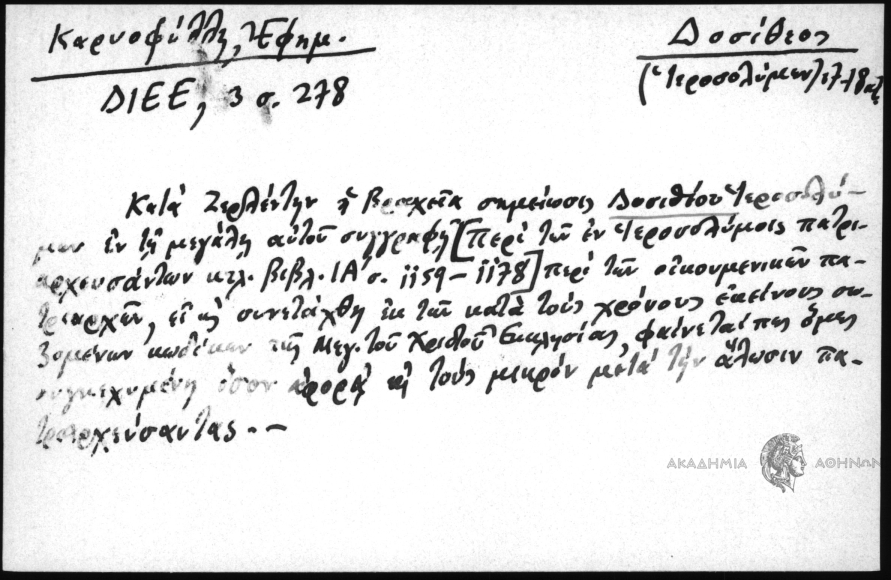 Καρυοφύλλη, Ἐφημ.
ΔΙΕΕ, 3 σ. 278
Δοσίθεος
(Ἱεροσολύμων) 17-18 αἰ.
Κατά Ζερλέντην ἡ βραχεῖα σημείωσις Δοσιθέου Ἱεροσολύ-
μων ἐν τῇ μεγάλῃ αὐτοῦ συγγραφῇ [Περί τῶν ἐν Ἱεροσολύμοις πατρι-
αρχευσάντων κτλ. βιβλ. ΙΑ΄ σ. 1159-1178] περί τῶν οἰκουμενικῶν πα-
τριαρχῶν, εἰ καί συνετάχθη ἐκ τῶν κατά τούς χρόνους ἐκείνους σω-
ζομένων κωδίκων τῆς Μεγ. τοῦ Χριστοῦ Ἐκκλησίας, φαίνεται πως ὅμως
συγκεχυμένη ὅσον ἀφορᾷ εἰς τούς μικρόν μετά τήν ἅλωσιν πα-
τριαρχεύσαντας.-
ΑΚΑΔΗΜΙΑ ΑΘΗΝΩΝ